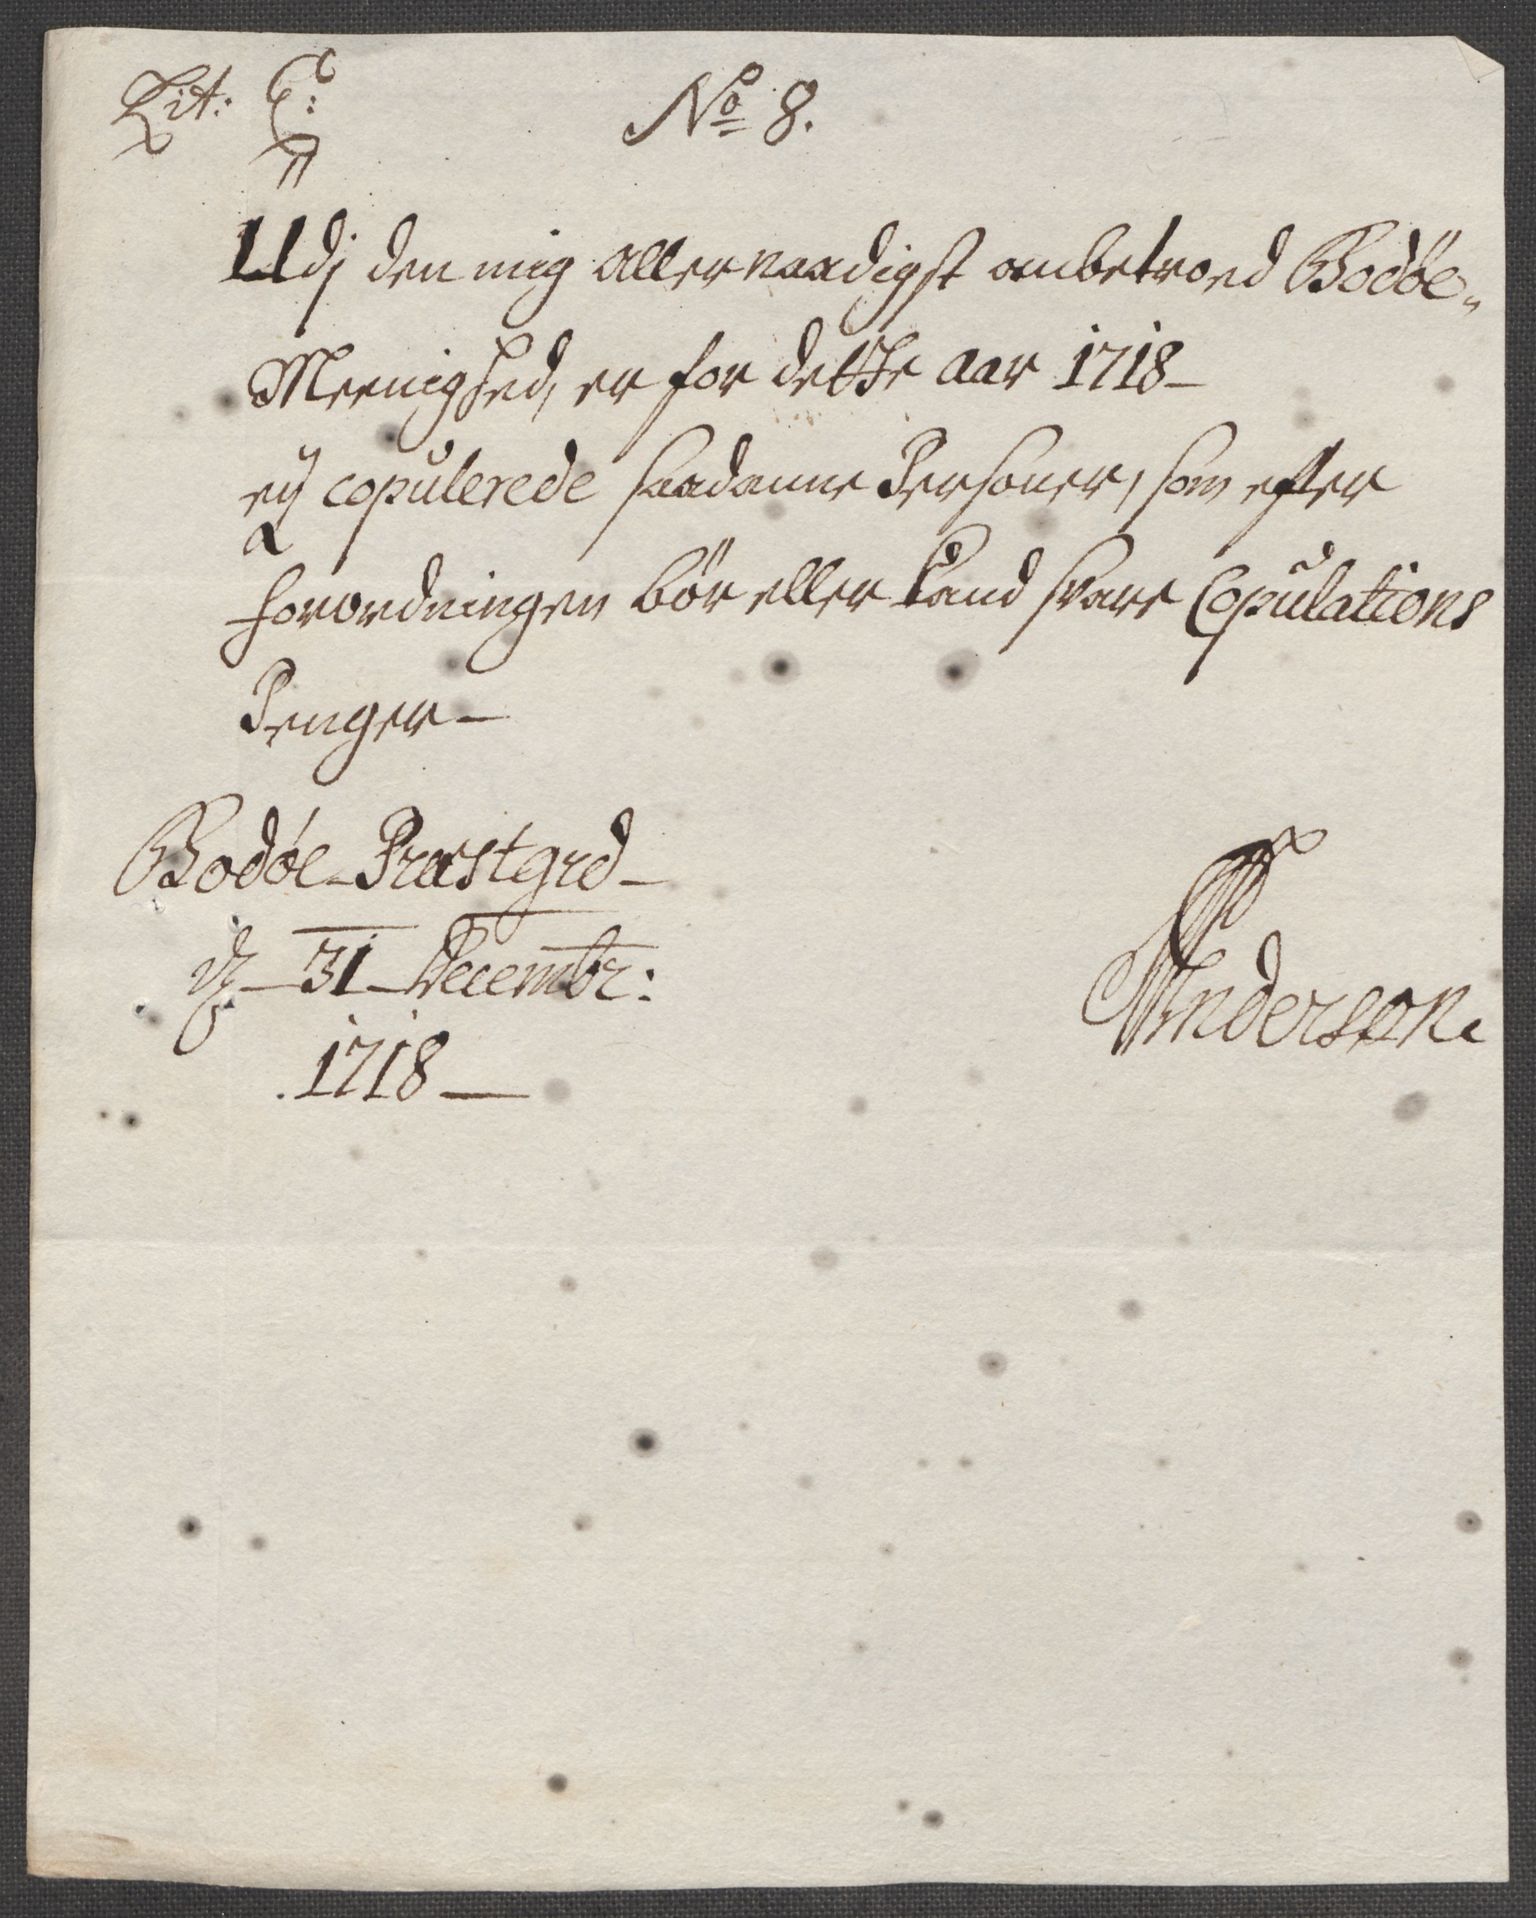 Lit: C: No 8.
Udj den mig allernaadigst anbetroed Bodöe-
Meenighed, er for dette Aar 1718-
eÿ copulerede saadanne Personer, som efter
forordningen bör eller kand svare Copulations
Penger-
Bodöe-Præstgrd-
31 Decembr:
1718-
Anderson